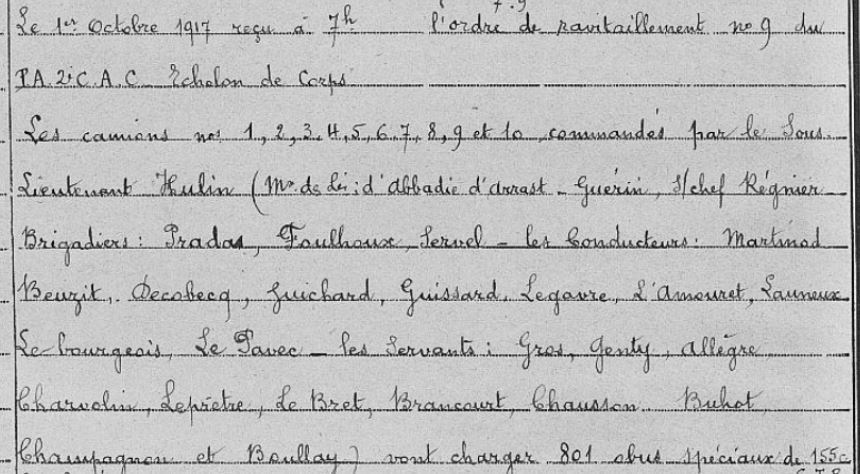 Le 1er Octobre 1917 reçu à 7h l'ordre de ravitaillement no 9 du
P.A. 2e C.A.C. Echelon de Corps
Les camions nos 1, 2, 3, 4, 5, 6, 7, 8, 9 et 10 commandés par le Sous-
Lieutenant Hulin (Mis des Lis : d'Abbadie d'Arrast - Guérin, S/chef Régnier
Brigadiers : Pradas, Foulhoux, Servel - les Conducteurs : Martinod
Beuzit, Decobecq, Guichard, Guissard, Legavre, L'Amouret, Launeux
Le bourgeois, Le Pavec - les Servants : Gros, Genty, Allègre
Charvolin, Leprêtre, Le Bret, Brancourt, Chausson Buhot
Champagnon et Boullay) vont charger 801 obus spéciaux de 155c